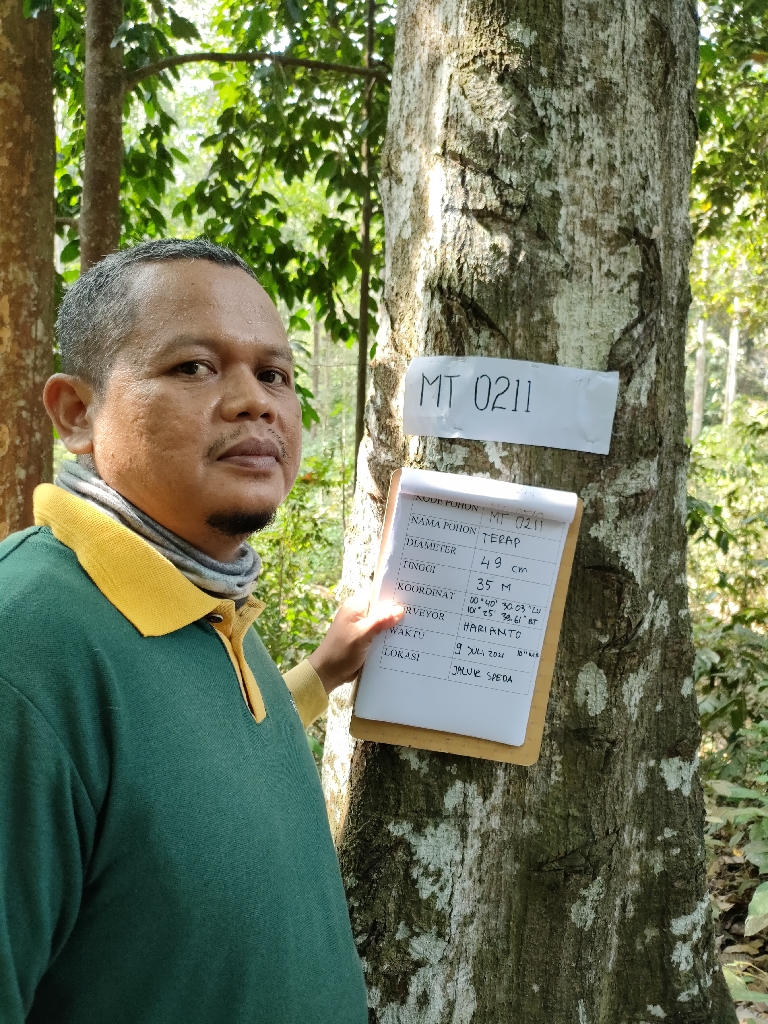 MT 0211
KODE POHON MT 0211
NAMA POHON TERAP
DIAMETER 49 cm
TINGGI 35 M
KOORDINAT 00° 40' 30.03" LU
101° 25' 38.61" BT
RVEYOR HARIANTO
WAKTU 9 JULI 2021
LOKASI JALUR SPEDA